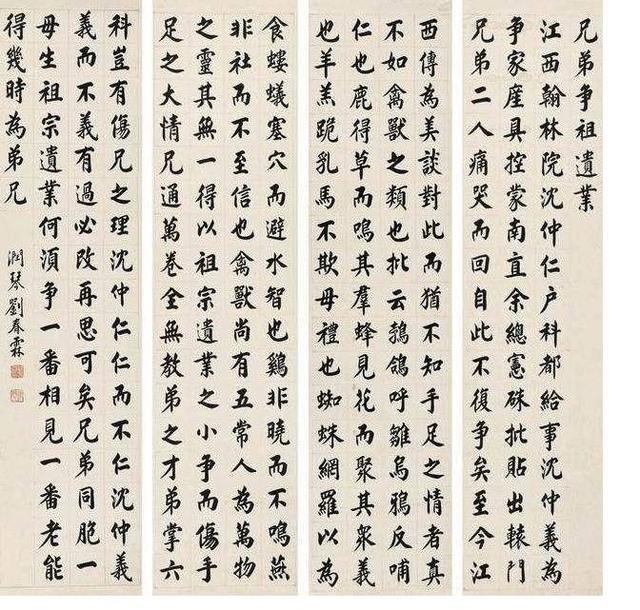 兄弟争祖遺業
江西翰林院沈仲仁户科都給事沈仲義為
争家產具控蒙南直余總憲硃批貼出轅門
兄弟二人痛哭而回自此不復争矣至今江
西傳為美談對此而猶不知手足之情者真
不如禽獸之類也批云鵓鴿呼雛烏鴉反哺
仁也鹿得草而鳴其羣蜂見花而聚其衆義
也羊羔跪乳馬不欺母禮也蜘蛛網羅以為
食螻蟻塞穴而避水智也鷄非曉而不鳴燕
非社而不至信也禽獸尚有五常人為萬物
之靈其無一得以祖宗遺業之小争而傷手
足之大情兄通萬卷全無教弟之才弟掌六
科豈有傷兄之理沈仲仁仁而不仁沈仲義
義而不義有過必改再思可矣兄弟同胞一
母生祖宗遺業何湏争一番相見一番老能
得幾時為弟兄
潤琴劉春霖